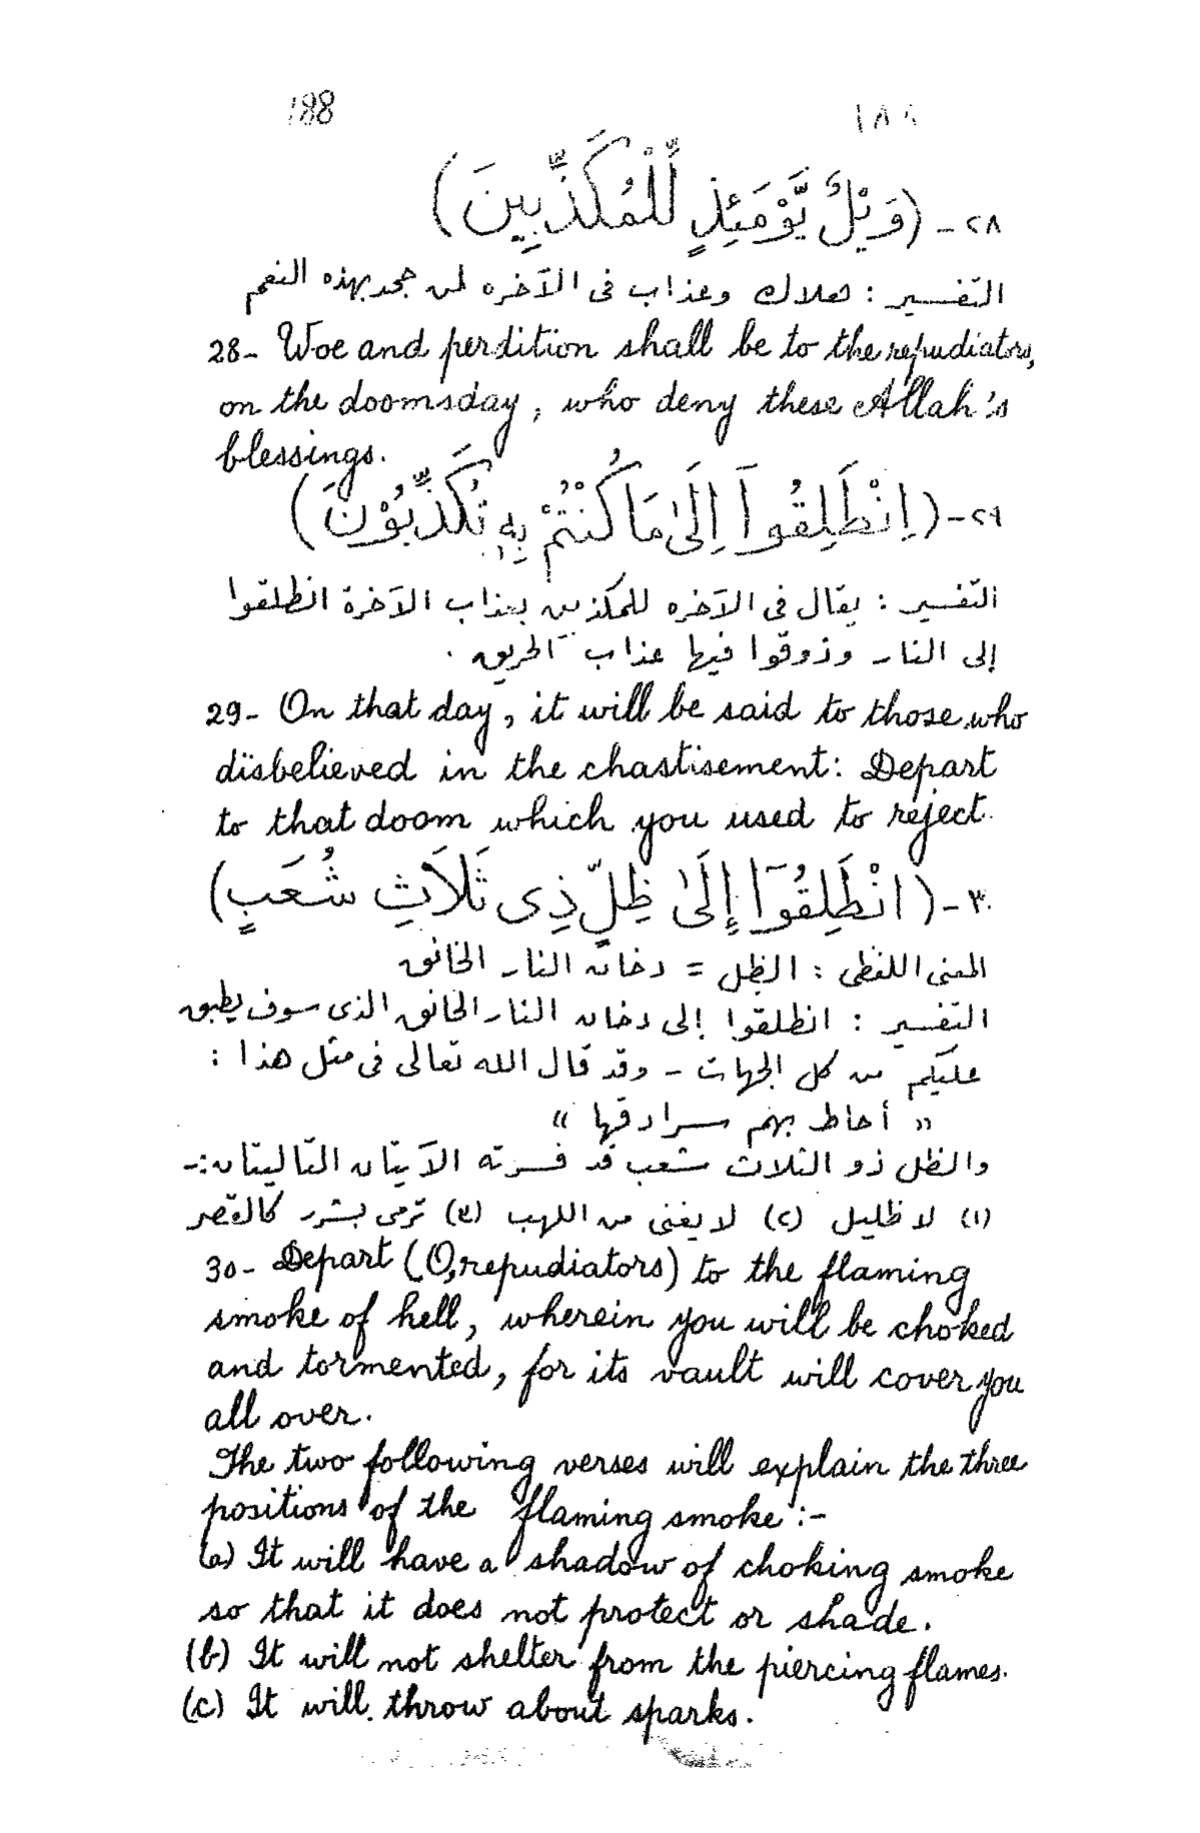 188 ١٨٨
٢٨- (وَيْلٌ يَّوْمَئِذٍ لِّلْمُكَذِّبِينَ)
التفسير : هلاك وعذاب فى الآخره لمن جحد بهذه النعم
28- Woe and perdition shall be to the repudiators,
on the doomsday, who deny these Allah's
blessings.
٢٩- (اِنْطَلِقُوآ اِلَىٰ مَا كُنْتُمْ بِهٖ تُكَذِّبُوْنَ)
التفسير : يقال فى الآخره للمكذبين بعذاب الآخرة انطلقوا
إلى النار وذوقوا فيها عذاب الحريق .
29- On that day, it will be said to those who
disbelieved in the chastisement: Depart
to that doom which you used to reject.
٣٠- (انْطَلِقُوٓا إِلَىٰ ظِلٍّ ذِى ثَلَاثِ شُعَبٍ)
المعنى اللفظى : الظل = دخان النار الخانق
التفسير : انطلقوا إلى دخان النار الخانق الذى سوف يطبق
عليكم من كل الجهات - وقد قال الله تعالى فى مثل هذا :
« أحاط بهم سرادقها »
والظل ذو الثلاث شعب قد فسرته الآيتان التاليتان :-
(١) لا ظليل (٢) لا يغنى من اللهب (٣) ترمى بشرر كالقصر
30- Depart (O, repudiators) to the flaming
smoke of hell, wherein you will be choked
and tormented, for its vault will cover you
all over.
The two following verses will explain the three
positions of the flaming smoke :-
(a) It will have a shadow of choking smoke
so that it does not protect or shade.
(b) It will not shelter from the piercing flames.
(c) It will throw about sparks.